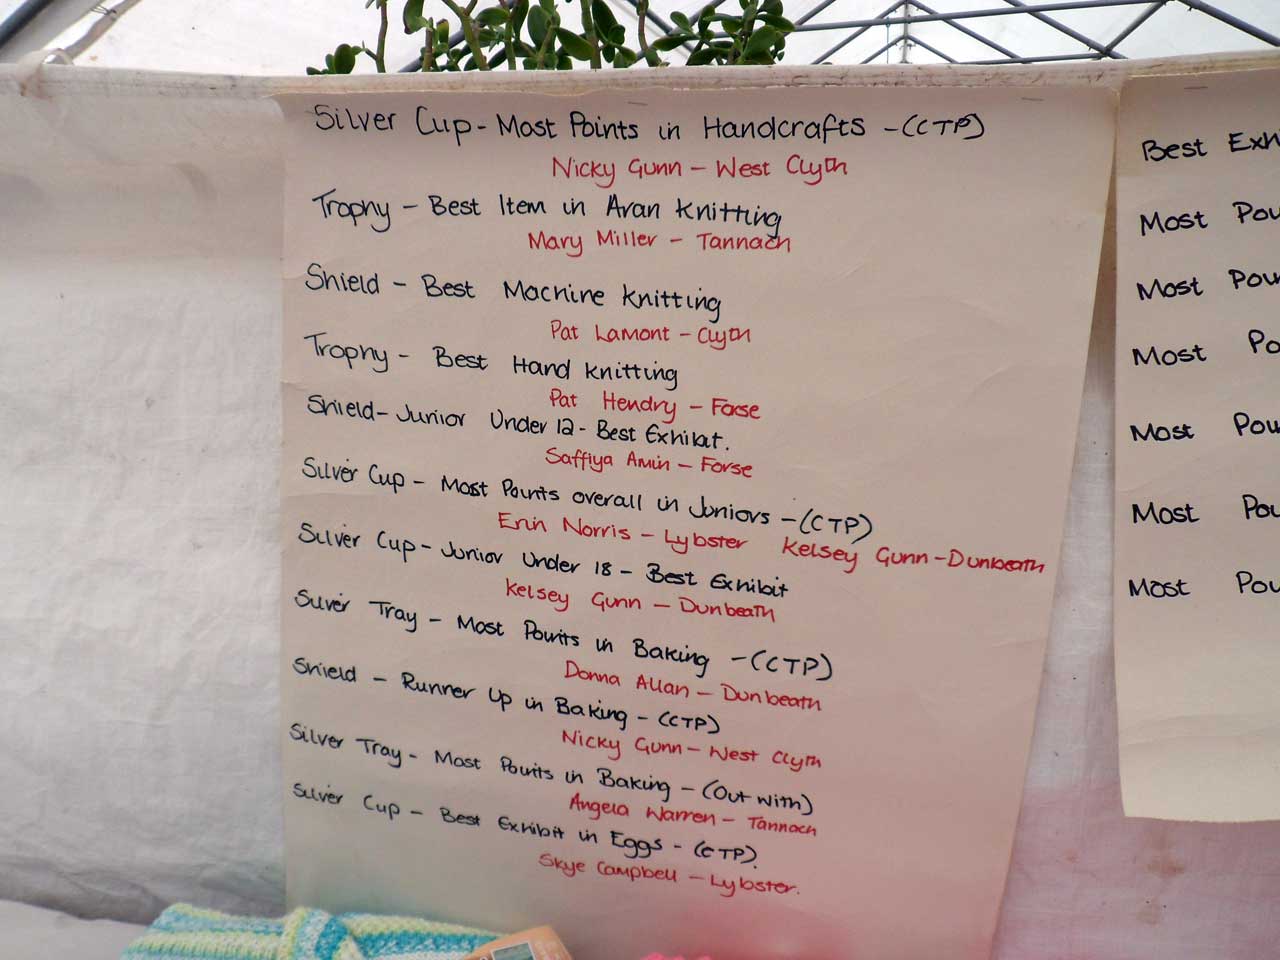 Silver Cup - Most Points in Handcrafts - (CTP)
Nicky Gunn - West Clyth
Trophy - Best Item in Aran Knitting
Mary Miller - Tannach
Shield - Best Machine Knitting
Pat Lamont - Clyth
Trophy - Best Hand Knitting
Pat Hendry - Forse
Shield - Junior Under 12 - Best Exhibit.
Saffiya Amin - Forse
Silver Cup - Most Points overall in Juniors - (CTP)
Erin Norris - Lybster Kelsey Gunn - Dunbeath
Silver Cup - Junior Under 18 - Best Exhibit
Kelsey Gunn - Dunbeath
Silver Tray - Most Points in Baking - (CTP)
Donna Allan - Dunbeath
Shield - Runner Up in Baking - (CTP)
Nicky Gunn - West Clyth
Silver Tray - Most Points in Baking - (Out with)
Angela Warren - Tannach
Silver Cup - Best Exhibit in Eggs - (CTP).
Skye Campbell - Lybster.
Best Exh
Most Poi
Most Poi
Most Po
Most Poi
Most Poi
Most Poi